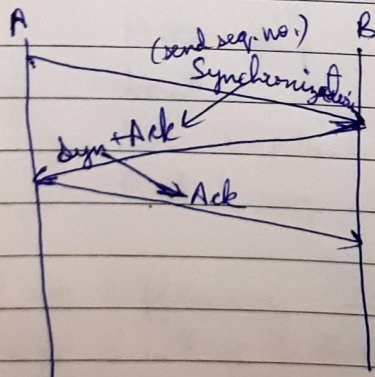 A
B
(send seq. no.)
Synchronization
Syn + Ack
Ack